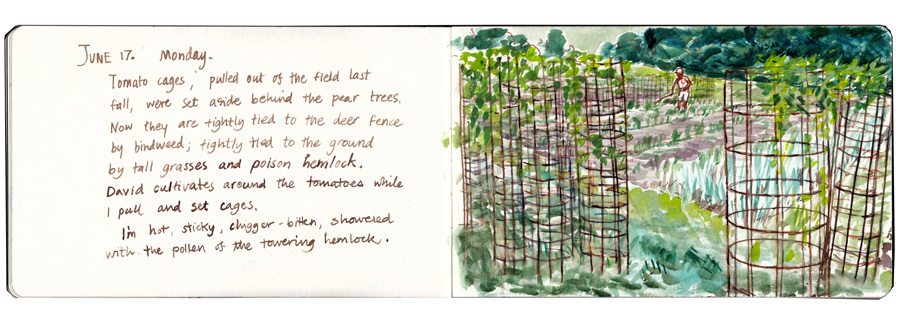 JUNE 17. Monday.
Tomato cages, pulled out of the field last
fall, were set aside behind the pear trees.
Now they are tightly tied to the deer fence
by bindweed; tightly tied to the ground
by tall grasses and poison hemlock.
David cultivates around the tomatoes while
I pull and set cages.
I'm hot, sticky, chigger-bitten, showered
with the pollen of the towering hemlock.